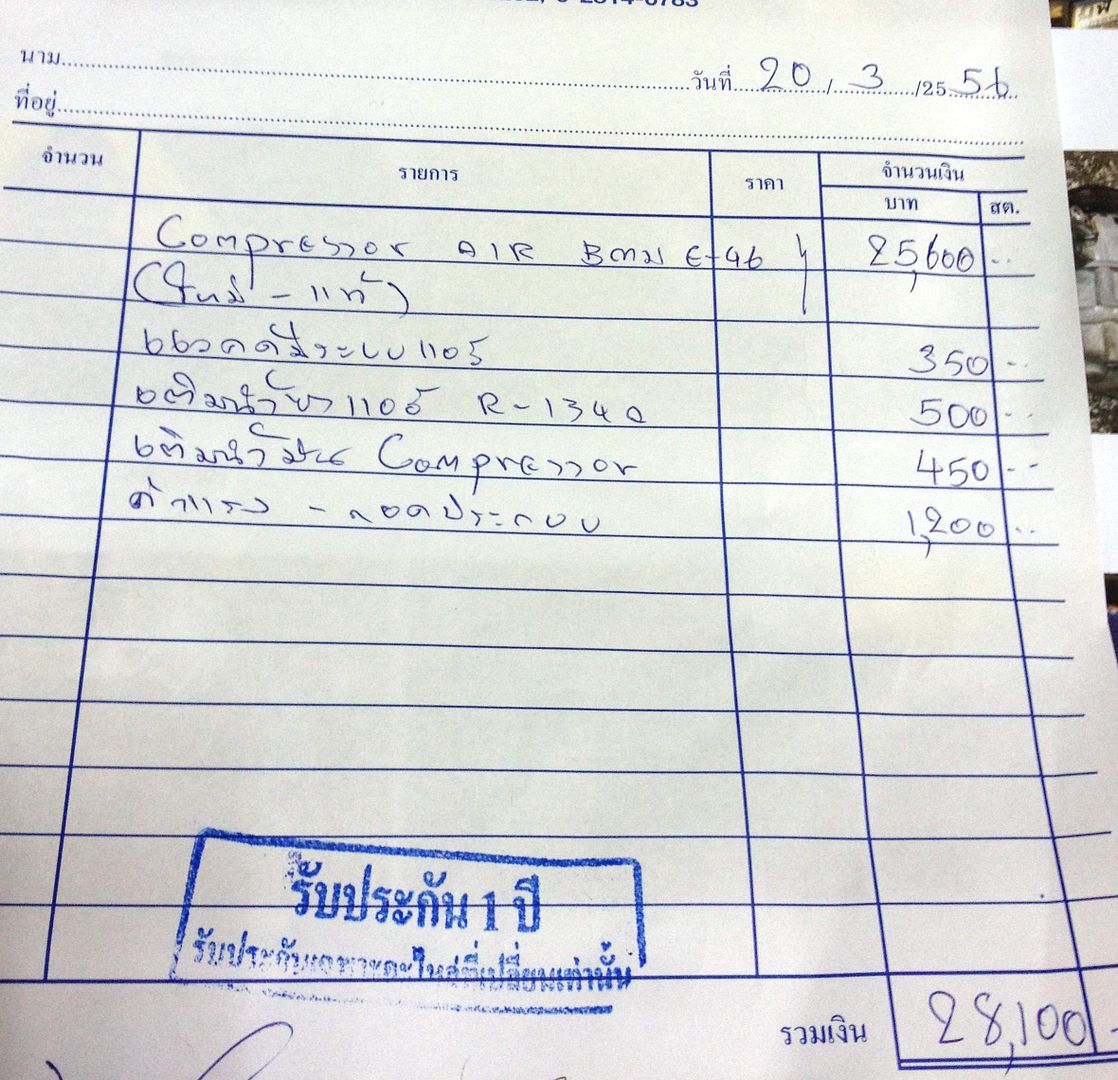 นาม
วันที่ 20 / 3 /25 56
ที่อยู่
จำนวน รายการ ราคา จำนวนเงิน
บาท สต.
Compressor AIR BMW E-46 25,600 --
(ใหม่ - แท้)
แวคคั่มระบบแอร์ 350 --
เติมน้ำยาแอร์ R-134a 500 --
เติมน้ำมัน Compressor 450 --
ค่าแรง - ถอดประกอบ 1,200 --
รับประกัน 1 ปี
รับประกันเฉพาะอะไหล่ที่เปลี่ยนเท่านั้น
รวมเงิน 28,100 -